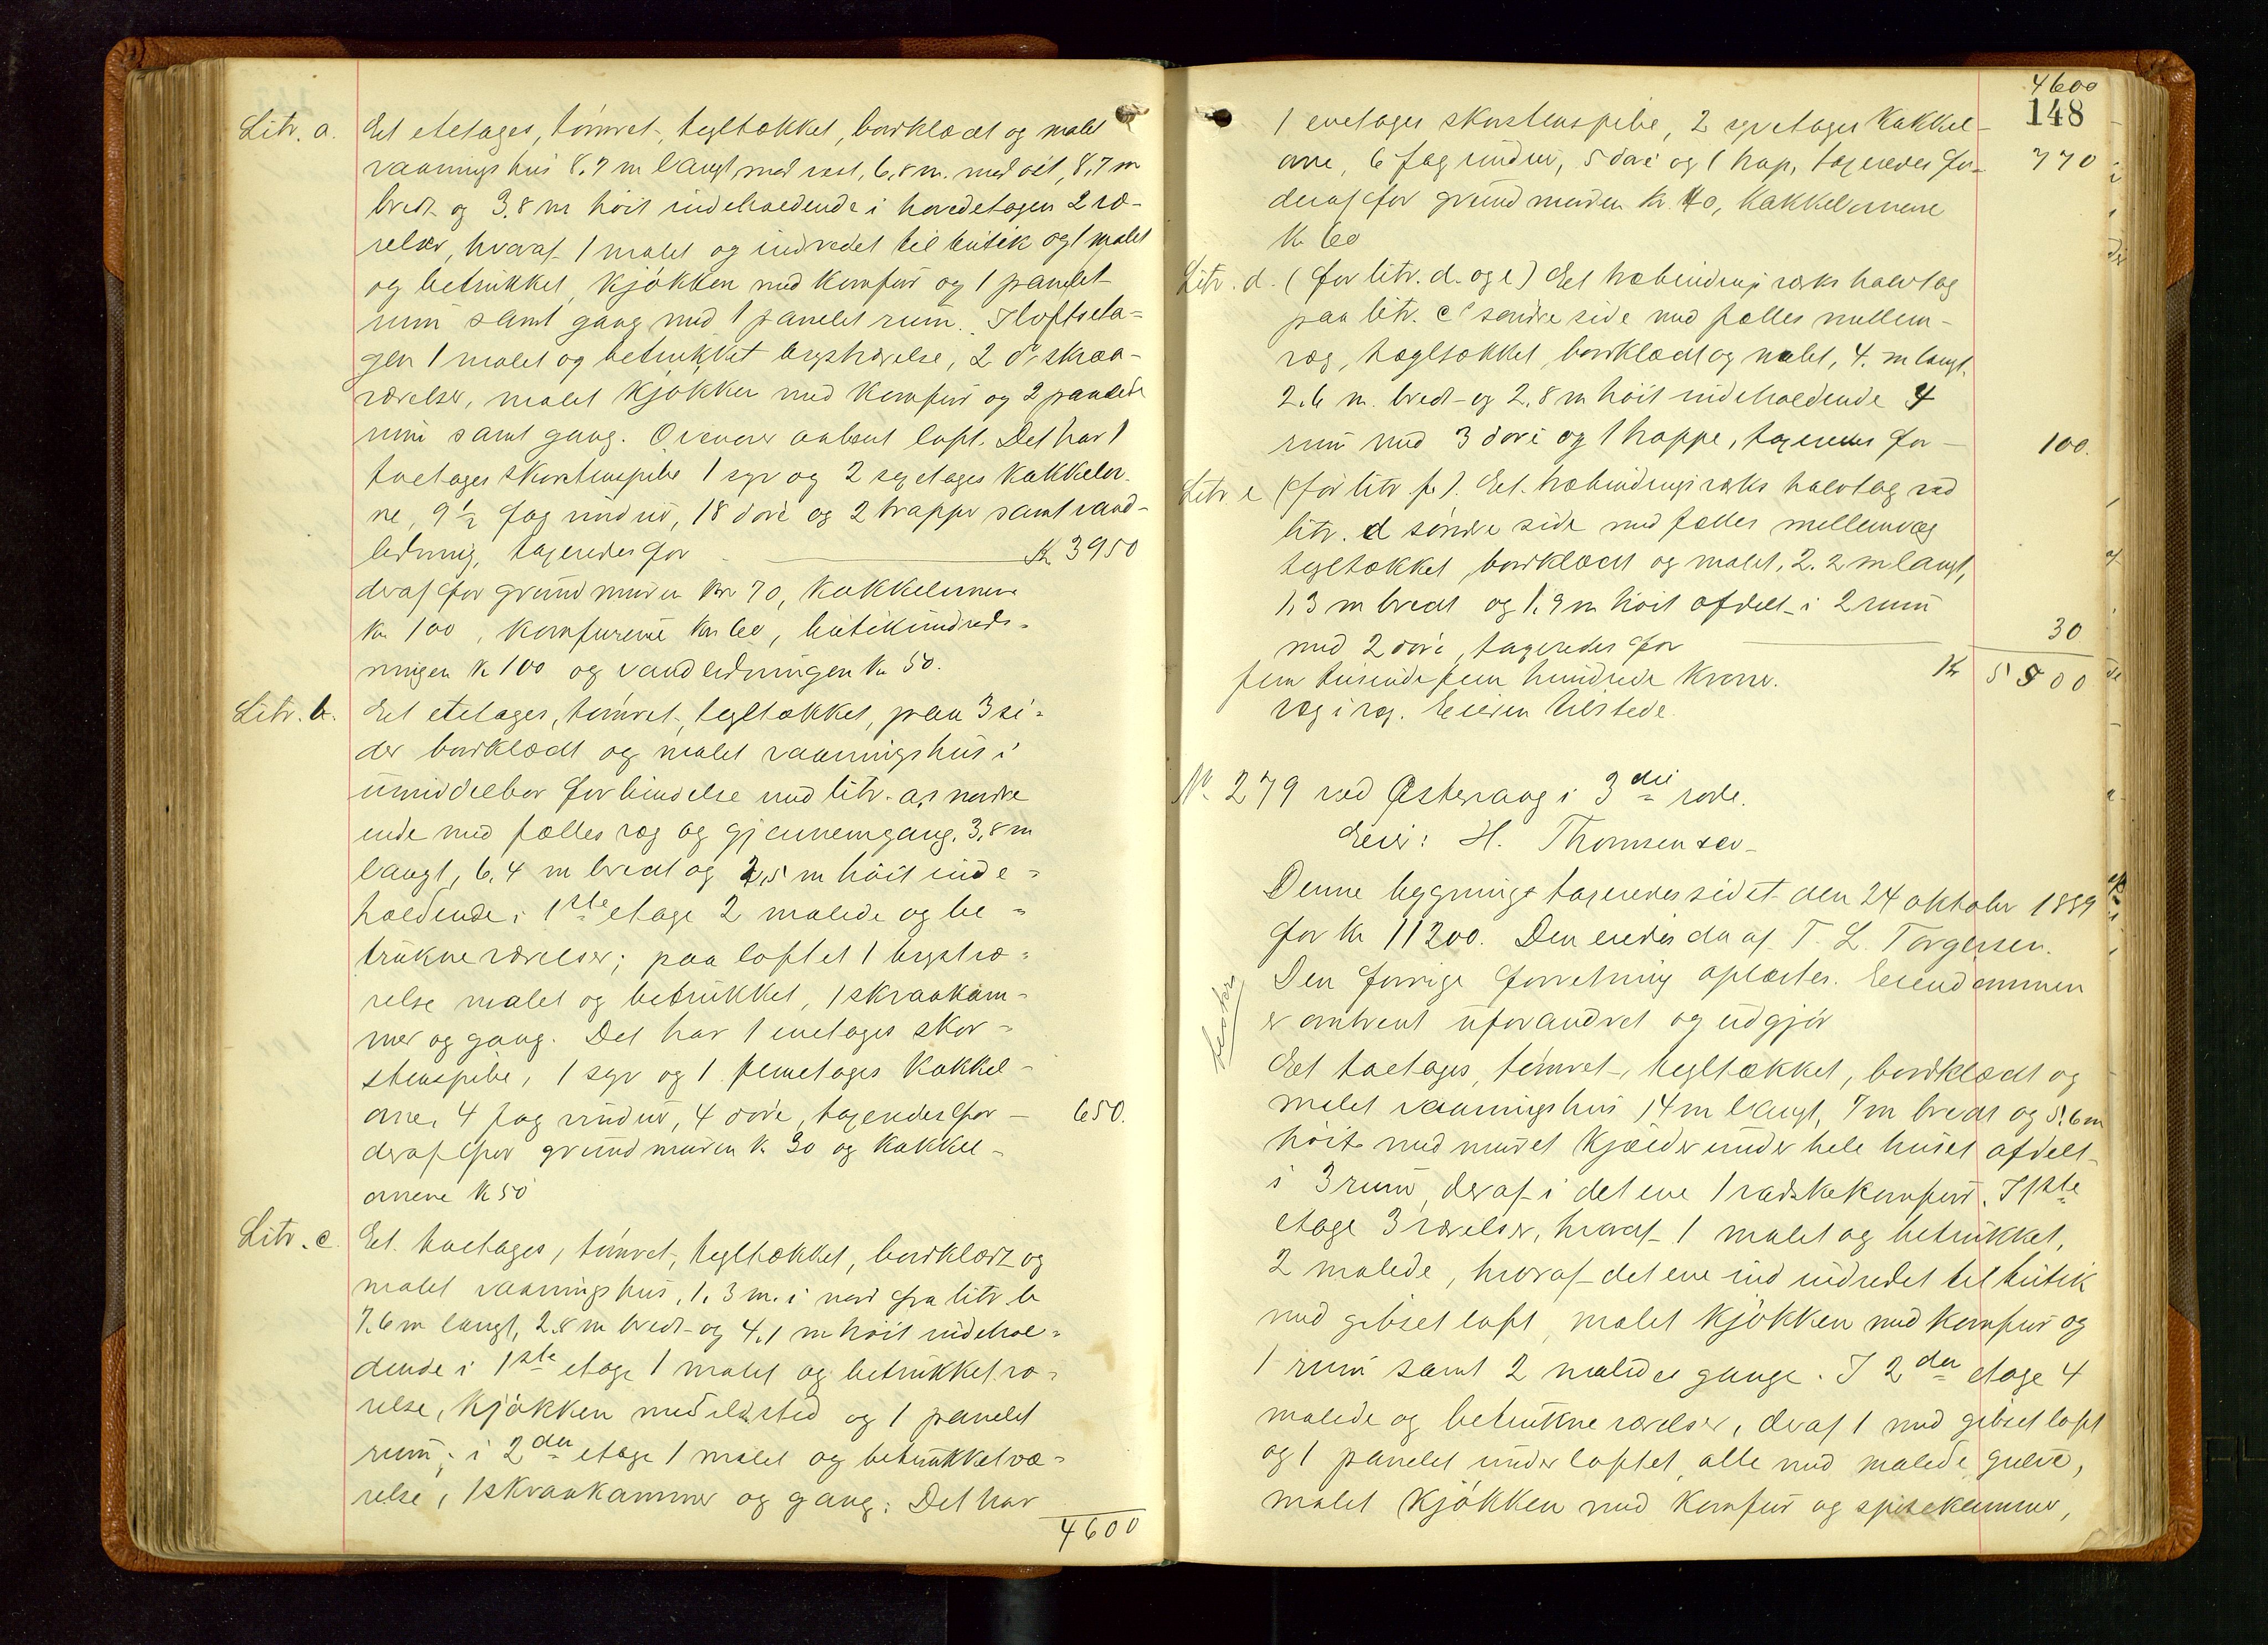 Litr. a. Et etetages, tømret, tegltækket, bordklædt og malet
vaaningshus 8,7 m langt mod vest, 6,8 m. mod øst, 8,7 m
bredt og 3,8 m høit indeholdende i hovedetagen 2 væ-
relser, hvoraf 1 malet og indredet til butik og 1 malet
og betrukket, kjøkken med komfur og 1 panelet
rum samt gang med 1 panelet rum. I loftseta-
gen 1 malet og betrukket kvistværelse, 2 do skraa-
værelser, malet kjøkken med komfur og 2 panelede
rum samt gang. Ovenover aabent loft. Det har 1
toetages skorstenspibe 1 syv og 2 sexetages kakkelov-
ne, 9 1/2 fag vinduer, 18 døre og 2 trapper samt vand-
ledning, taxeredes for Kr 3950
deraf for grundmuren Kr 70, kakkelovnene
Kr 100, komfurene Kr 60, butikindred-
ningen Kr 100 og vandledningen Kr 50.
Litr. b. Et etetages, tømret, tegltækket, paa 3 si-
der bordklædt og malet vaaningshus i
umiddelbar forbindelse med litr. a,s nordre
ende med fælles væg og gjennemgang, 3,8 m
langt, 6,4 m bredt og 2,5 m høit inde-
holdende i 1ste etage 2 malede og be-
trukne værelser; paa loftet 1 kvistvæ-
relse malet og betrukket, 1 skraakam-
mer og gang. Det har 1 enetages skor-
stenspibe, 1 syv og 1 femetages kakkel-
ovne, 4 fag vinduer, 4 døre, taxeredes for 650.
deraf for grundmuren Kr 30 og kakkel-
ovnene Kr 50
Litr. c. Et toetages, tømret, tegltækket, bordklædt og
malet vaaningshus, 1,3 m. i nord fra litr. b
7,6 m langt, 2,8 m bredt og 4,1 m høit indehol-
dende i 1ste etage 1 malet og betrukket væ-
relse, kjøkken med ildsted og 1 panelet
rum; i 2den etage 1 malet og betrukket væ-
relse, 1 skraakammer og gang. Det har
4600
4600
148
1 enetages skorstenspibe, 2 syvetages kakkel-
ovne, 6 fag vinduer, 5 døre og 1 trap, taxeredes for 770
deraf for grundmuren Kr. 40, kakkelovnene
Kr 60
Litr. d. (før litr. d. og e) Et træbindingsværks halvtag
paa litr. c's søndre side med fælles mellem-
væg, tegltækket bordklædt og malet, 4. m langt.
2,6 m. bredt og 2,8 m høit indeholdende 4
rum med 3 døre og 1 trappe, taxeredes for 100.
Litr. e (før litr. f.). Et. træbindingsværks halvtag ved
litr. d søndre side med fælles mellemvæg
tegltækket, bordklædt og malet, 2.2 m langt,
1,3 m bredt og 1,9 m høit afdelt i 2 rum
med 2 døre, taxeredes for 30
fem tusinde fem hundrede Kroner. Kr 5500
væg i væg. Eieren tilstede.
No 279 ved Østervaag i 3die rode.
Eier: H. Thomsen sen
Denne bygning taxeredes sidst den 24 oktober 1889
for Kr 11200. Den eiedes da af T. L. Torgersen.
Den forrige forretning oplæstes. Eiendommen
er omtrent uforandret og udgjør
Et toetages, tømret, tegltækket, bordklædt og
malet vaaningshus 14 m langt, 7 m bredt og 5,6 m
høit med muret kjælder under hele huset afdelt
i 3 rum, deraf i det ene 1 vadskekomfur. I 1ste
etage 3 værelser, hvoraf 1 malet og betrukket,
2 malede, hvoraf det ene ind indredet til butik
med gibset loft, malet kjøkken med komfur og
1 rum samt 2 malede gange. I 2den etage 4
malede og betrukne værelser, deraf 1 med gibset loft
og 1 panelet under loftet, alle med malede gulve,
malet kjøkken med komfur og spisekammer,